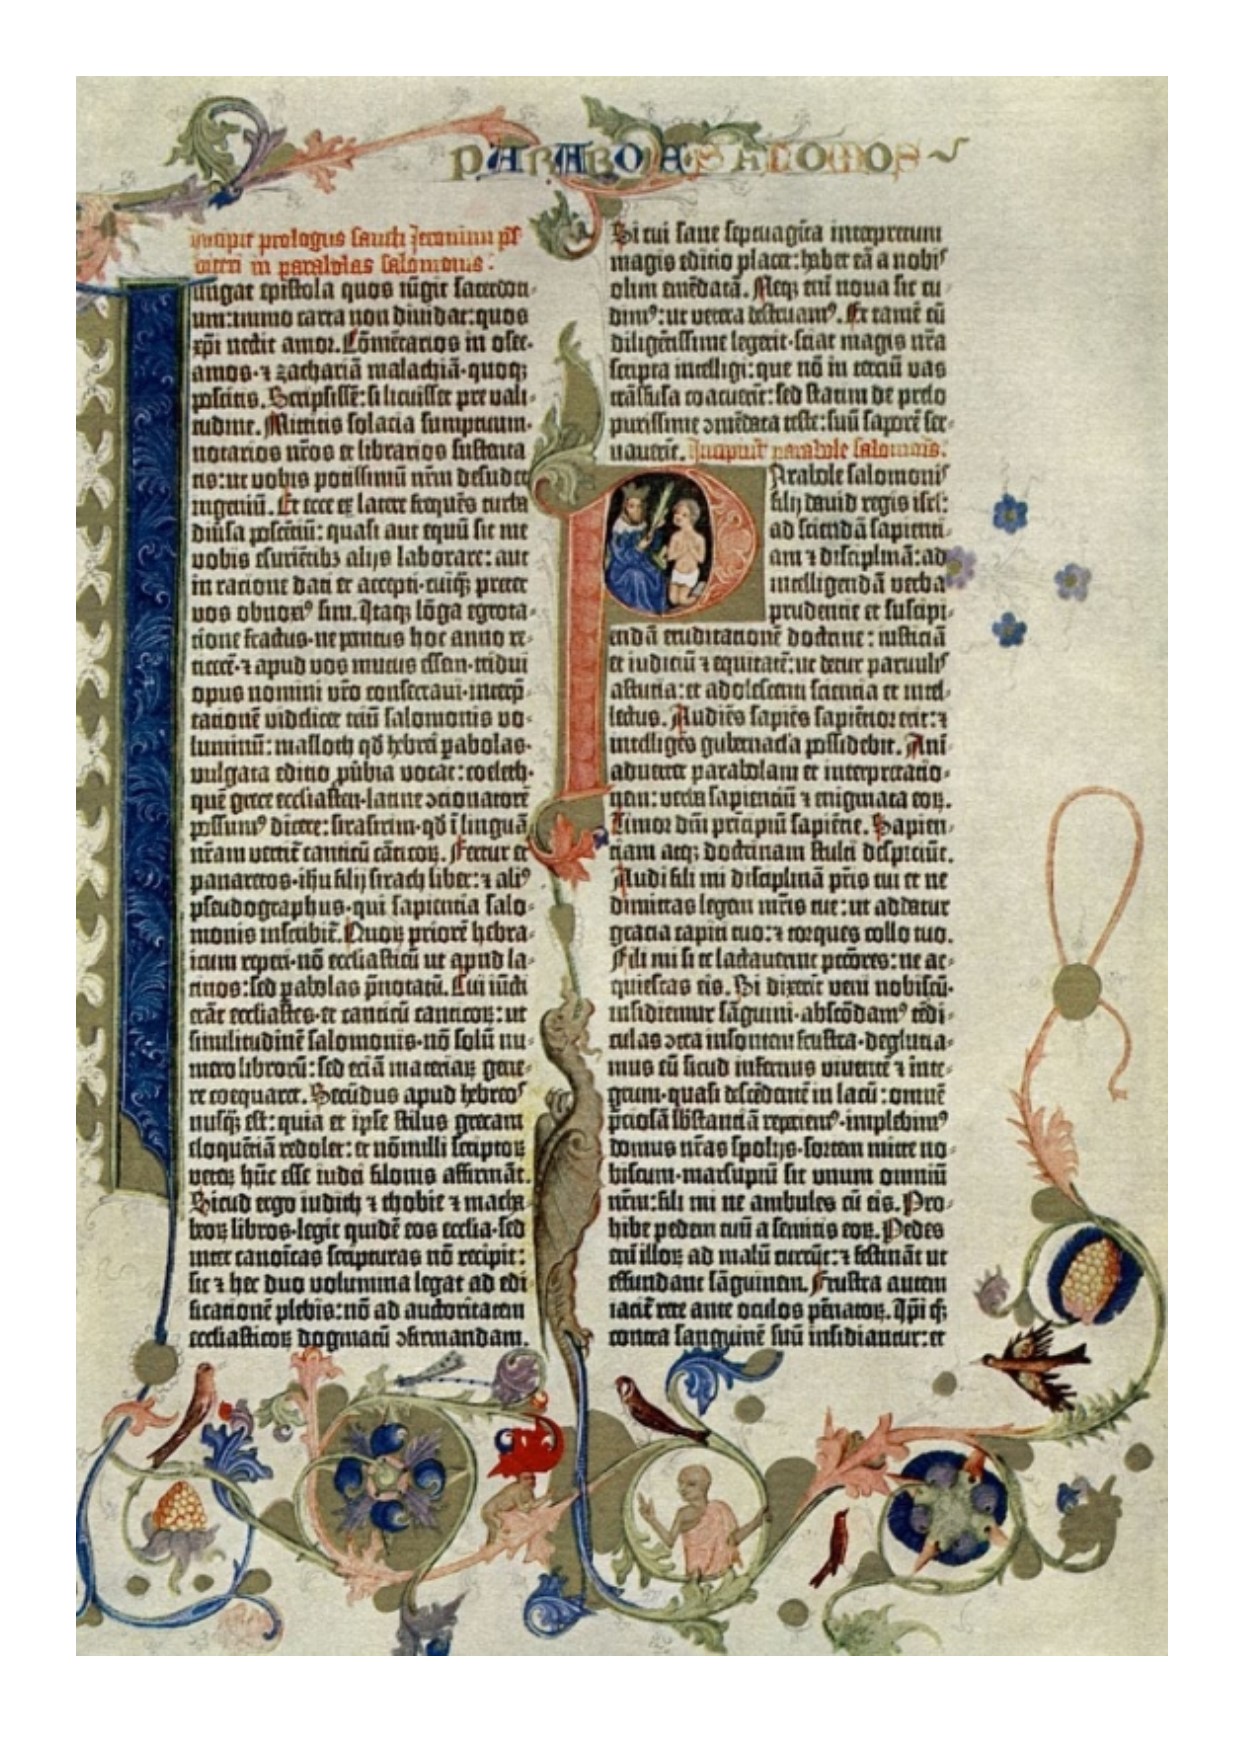 PARABOLE
Incipit prologus sancti Jeronimi pſ
biteri in parabolas salomonis.
Iungat epiſtola quos iūgit ſacerdoci-
um: immo carta non diuidat: quos
xp̄i nectit amor. Cōmētarios in oſee.
amos. ⁊ zachariā malachiā. quoq;
poſcitis. Scripſiſſē: ſi licuiſſet pre vali-
tudine. Mittitis ſolacia ſumptuum.
notarios nr̄os et librarios ſuſtenta-
tis: ut vobis potiſſimū nr̄m deſudet
ingeniū. Et ecce ex latere frequēs turba
diūſa poſcētiū: quaſi aut equū ſit me
vobis eſuriētibꝫ alijs laborare: aut
in racione dati et accepti. cuiq̄ꝫ preter
vos obnoxiꝰ ſim. Itaqꝫ lōga egrota-
tione fractus. ne penitus hoc anno re-
ticerē. ⁊ apud vos mutus eſſem. tridui
opus nomini vr̄o conſecraui. interp̄-
tationē videlicet triū ſalomonis vo-
luminū: maſloth qd̄ hebrei pabolas.
vulgata editio pūbia vocat: coeleth.
quē grece eccliaſten. latine ↄtionatorē
poſſumꝰ dicere: ſiraſirim. qd̄ ī linguā
nr̄am vertit̄ canticū cāticoꝝ. Fertur et
panaretos. ihu filij ſirach liber: ⁊ aliꝰ
pſeudographus. qui ſapientia ſalo-
monis inſcribit̄. Quoꝝ priorē hebra-
icum repperi. nō eccliaſticū ut apud la-
tinos: ſed pabolas p̄notatū. Cui iūcti
erāt eccliaſtes. et canticū canticoꝝ: ut
ſimilitudinē ſalomonis. nō ſolū nu-
mero libroꝝ: ſed etiā materiaꝝ gene-
re coequaret. Secūdus apud hebreos
nuſq̄ꝫ eſt: quia et ipſe ſtilus grecam
eloquētiā redolet: et nōnulli ſcriptoꝝ
veteꝝ hūc eſſe iudei filonis affirmāt.
Sicud ergo iudith ⁊ thobie ⁊ macha-
beoꝝ libros. legit quidē eos ecclia. ſed
inter canoīcas ſcripturas nō recipit:
ſic ⁊ hec duo volumina legat ad edi-
ficationē plebis: nō ad auctoritatem
eccliaſticoꝝ dogmatū ↄfirmandam.
Si cui ſane ſeptuagīta interpretum
magis editio placet: habet eā a nobis
olim emēdatā. Neqꝫ em̄ noua ſic cu-
dimꝰ: ut vetera deſtruamꝰ. Et tamē cū
diligētiſſime legerit. ſciat magis nr̄a
ſcripta intelligi: que nō in terciū vas
trāſfuſa coacuerīt: ſed ſtatim de prelo
puriſſime ↄmēdata teſte: ſuū ſaporē ſer-
uauerīt. Incipiūt parabole ſalomonis.
Parabole ſalomonis
filij dauid regis iſrl̄:
ad ſciendā ſapienti-
am ⁊ diſciplinā: ad
intelligendā verba
prudentie et ſuſcipi-
endā eruditationē doctrine: iuſticiā
et iudiciū ⁊ equitatē: ut detur paruulis
aſtutia: et adoleſcenti ſcientia et intel-
lectus. Audiēs ſapiēs ſapiētior erit: ⁊
intelligēs gubernacl̄a poſſidebit. Ani-
aduertet parabolam et interpretatio-
nem: verba ſapientiū ⁊ enigmata eoꝝ.
Timor dn̄i principiū ſapiētie. Sapien-
tiam atqꝫ doctrinam ſtulti deſpiciūt.
Audi fili mi diſciplinā pr̄is tui et ne
dimittas legem mr̄is tue: ut addatur
gracia capiti tuo: ⁊ torques collo tuo.
Fili mi ſi te lactauerint pctōres: ne ac-
quieſcas eis. Si dixerīt veni nobiſcū.
inſidiemur ſāguini. abſcōdamꝰ tēdi-
culas ↄtra inſontem fruſtra. degluti a-
mus eū ſicud infernus viuentē ⁊ inte-
grum. quaſi deſcēdentē in lacū: omnē
p̄cioſā ſb̄ſtantiā reperiemꝰ. implebimꝰ
domus nr̄as ſpolijs. ſortem mitte no-
biſcum. marſupiū ſit unum omniū
nr̄m: fili mi ne ambules cū eis. Pro-
hibe pedem tuū a ſemitis eoꝝ. Pedes
em̄ illoꝝ ad malū currūt: ⁊ feſtināt ut
effundant ſāguinem. Fruſtra autem
iacit̄ rete ante oculos pēnatoꝝ. Ip̄i qꝫ
contra ſanguinē ſuū inſidiantur: et